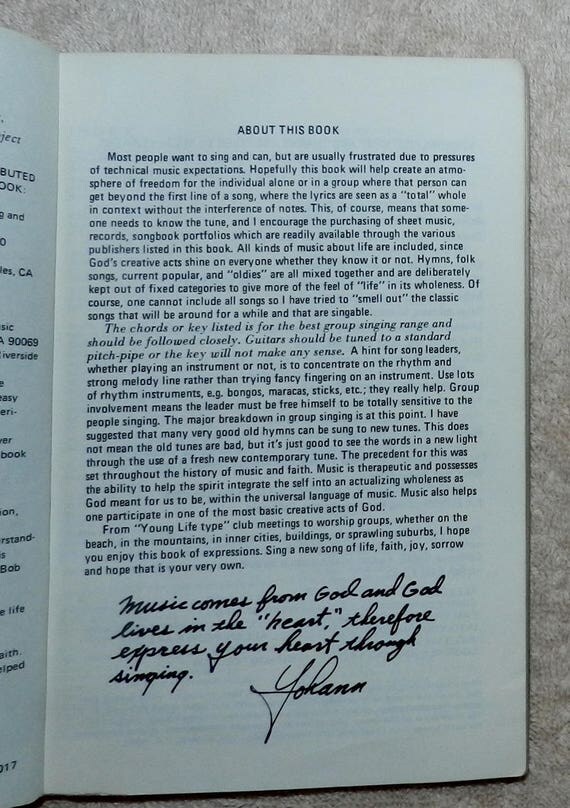 ject
BUTED
OOK:
g and
0
les, CA
sic
A 90069
iverside
e
easy
eri-
ver
book
ion,
rstand-
is
Bob
e life
aith.
elped
017
ABOUT THIS BOOK
Most people want to sing and can, but are usually frustrated due to pressures
of technical music expectations. Hopefully this book will help create an atmo-
sphere of freedom for the individual alone or in a group where that person can
get beyond the first line of a song, where the lyrics are seen as a "total" whole
in context without the interference of notes. This, of course, means that some-
one needs to know the tune, and I encourage the purchasing of sheet music,
records, songbook portfolios which are readily available through the various
publishers listed in this book. All kinds of music about life are included, since
God's creative acts shine on everyone whether they know it or not. Hymns, folk
songs, current popular, and "oldies" are all mixed together and are deliberately
kept out of fixed categories to give more of the feel of "life" in its wholeness. Of
course, one cannot include all songs so I have tried to "smell out" the classic
songs that will be around for a while and that are singable.
The chords or key listed is for the best group singing range and
should be followed closely. Guitars should be tuned to a standard
pitch-pipe or the key will not make any sense. A hint for song leaders,
whether playing an instrument or not, is to concentrate on the rhythm and
strong melody line rather than trying fancy fingering on an instrument. Use lots
of rhythm instruments, e.g. bongos, maracas, sticks, etc.; they really help. Group
involvement means the leader must be free himself to be totally sensitive to the
people singing. The major breakdown in group singing is at this point. I have
suggested that many very good old hymns can be sung to new tunes. This does
not mean the old tunes are bad, but it's just good to see the words in a new light
through the use of a fresh new contemporary tune. The precedent for this was
set throughout the history of music and faith. Music is therapeutic and possesses
the ability to help the spirit integrate the self into an actualizing wholeness as
God meant for us to be, within the universal language of music. Music also helps
one participate in one of the most basic creative acts of God.
From "Young Life type" club meetings to worship groups, whether on the
beach, in the mountains, in inner cities, buildings, or sprawling suburbs, I hope
you enjoy this book of expressions. Sing a new song of life, faith, joy, sorrow
and hope that is your very own.
Music comes from God and God
lives in the "heart," therefore
express your heart through
singing.
Yohann